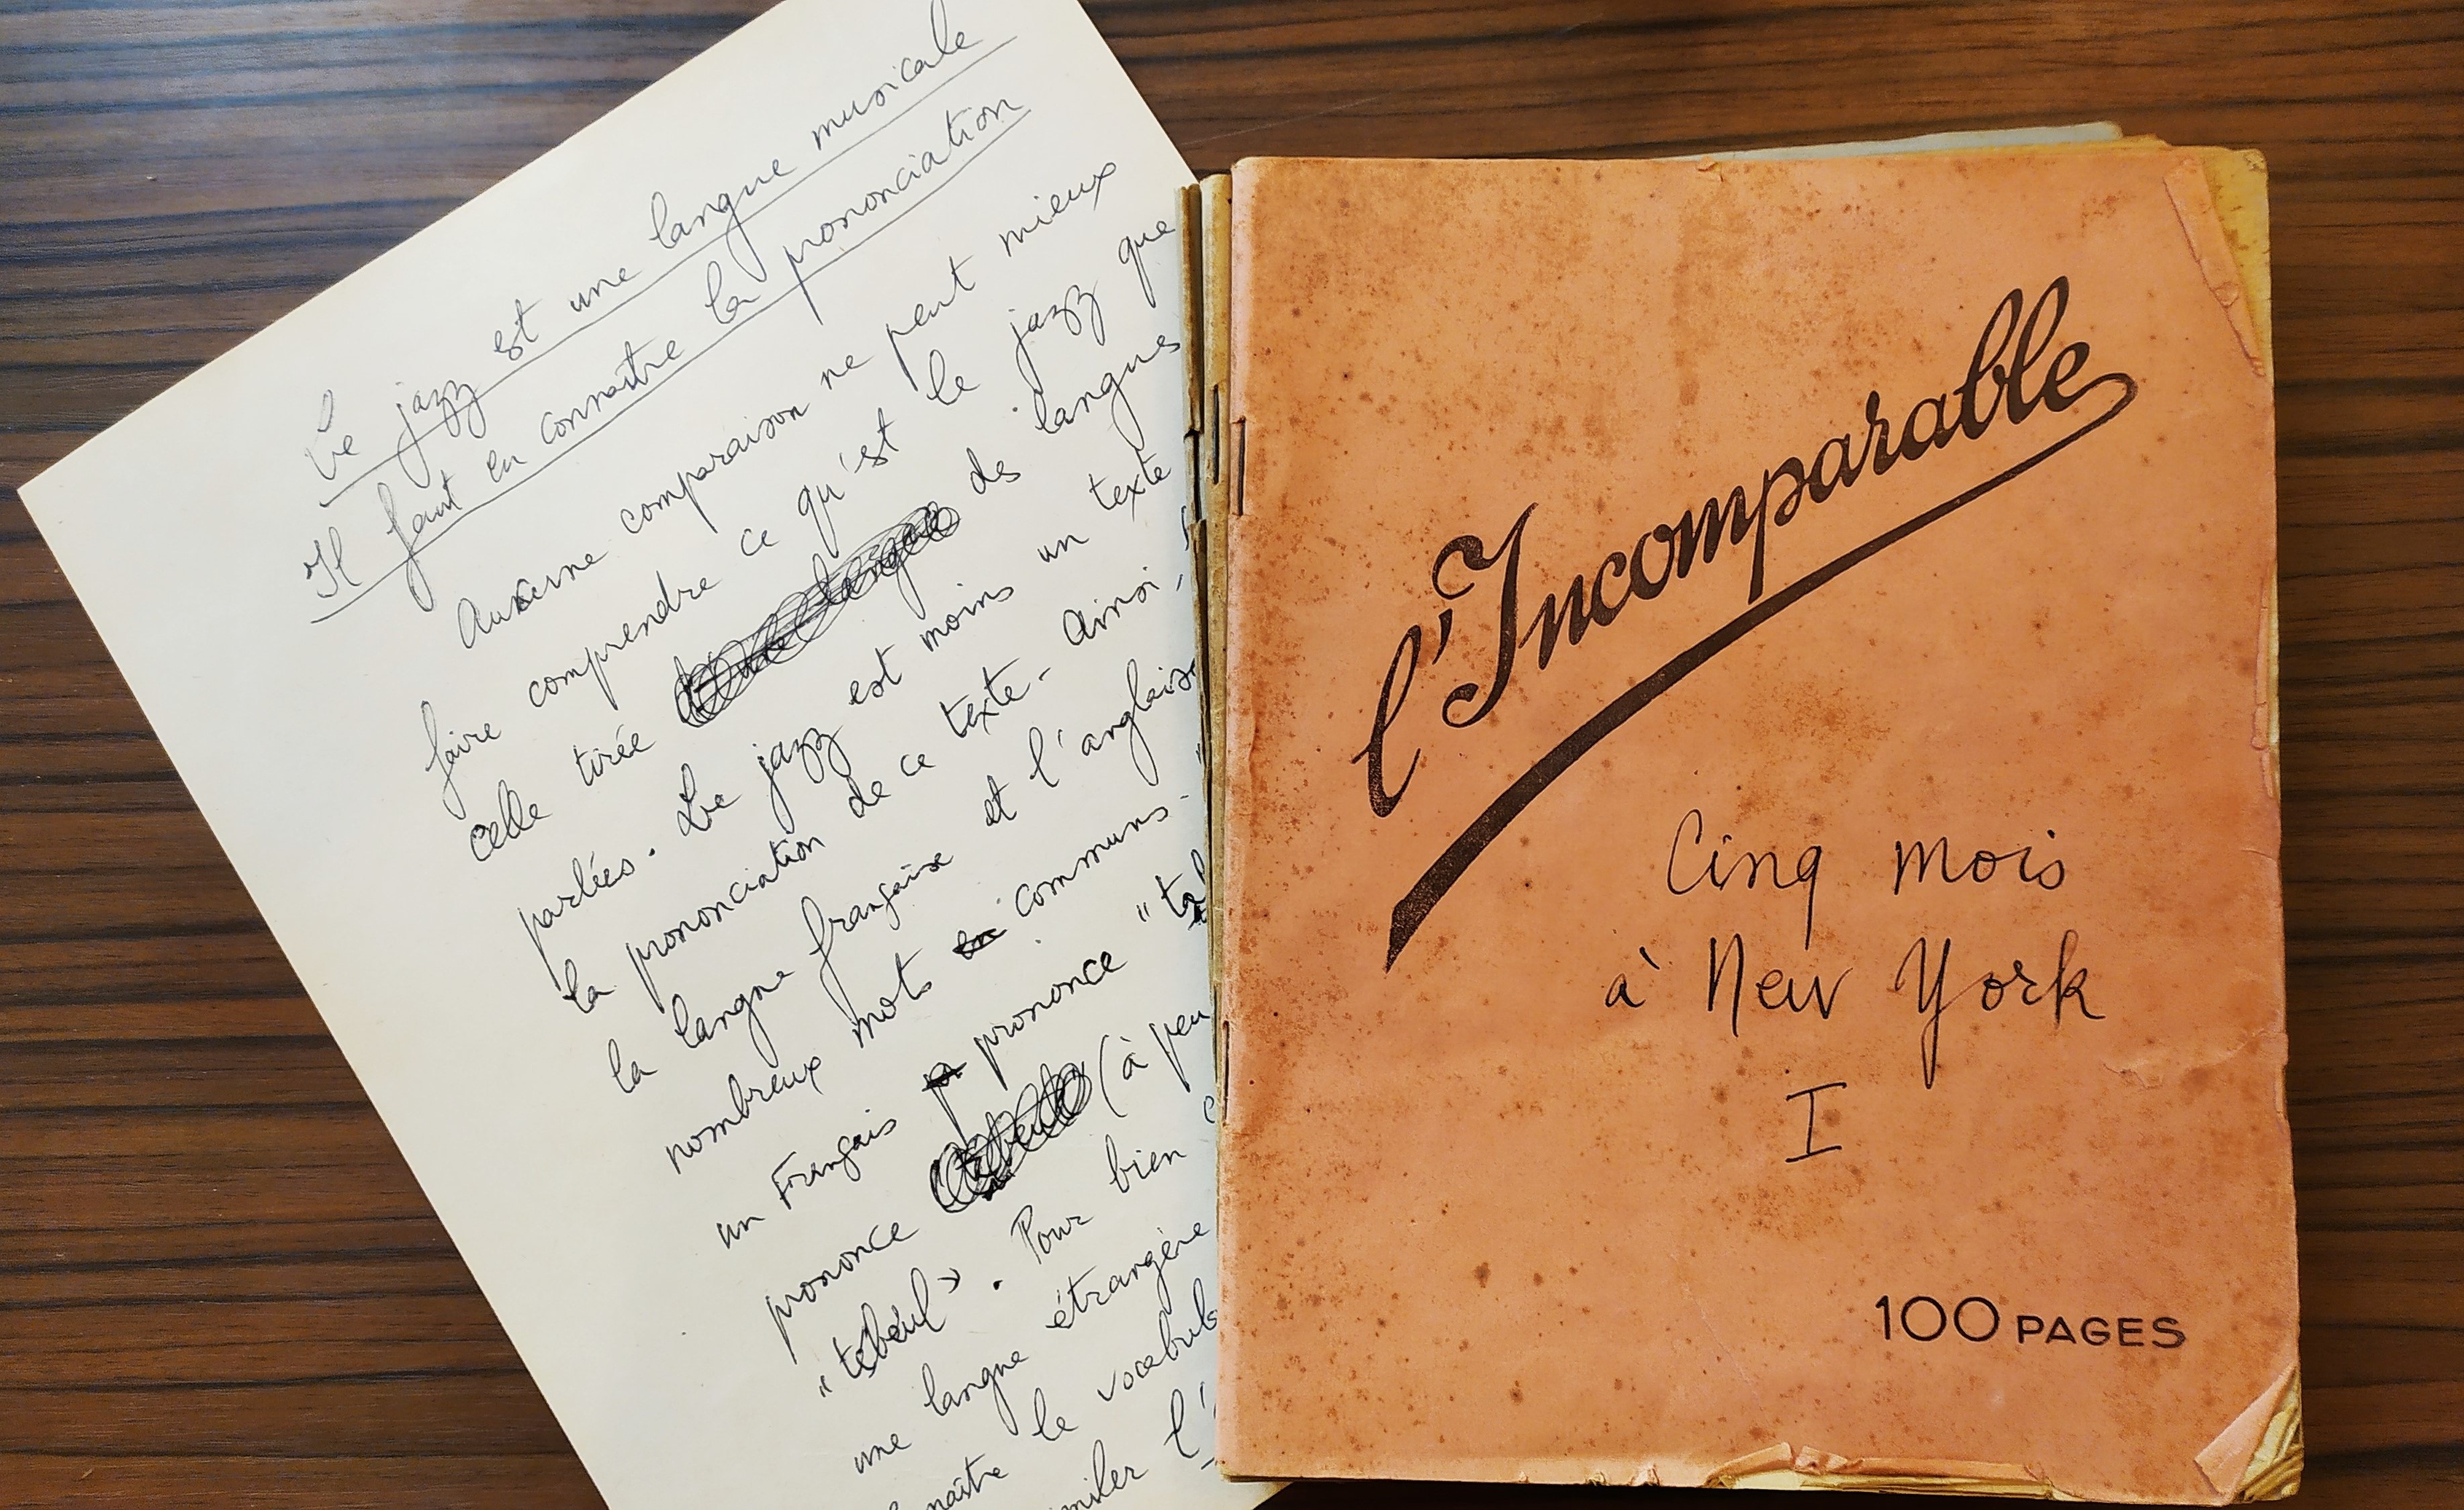 Le jazz est une langue musicale
Il faut en connaître la prononciation
Aucune comparaison ne peut mieux
faire comprendre ce qu'est le jazz que
celle tirée des langues
parlées. Le jazz est moins un texte
la prononciation de ce texte. Ainsi,
la langue française et l'anglaise
nombreux mots communs.
un Français prononce "tabl
prononce (à peu
"tebeul". Pour bien
une langue étrangère
naître le vocabula
miler l'
l'Incomparable
Cinq mois
à New York
I
100 PAGES